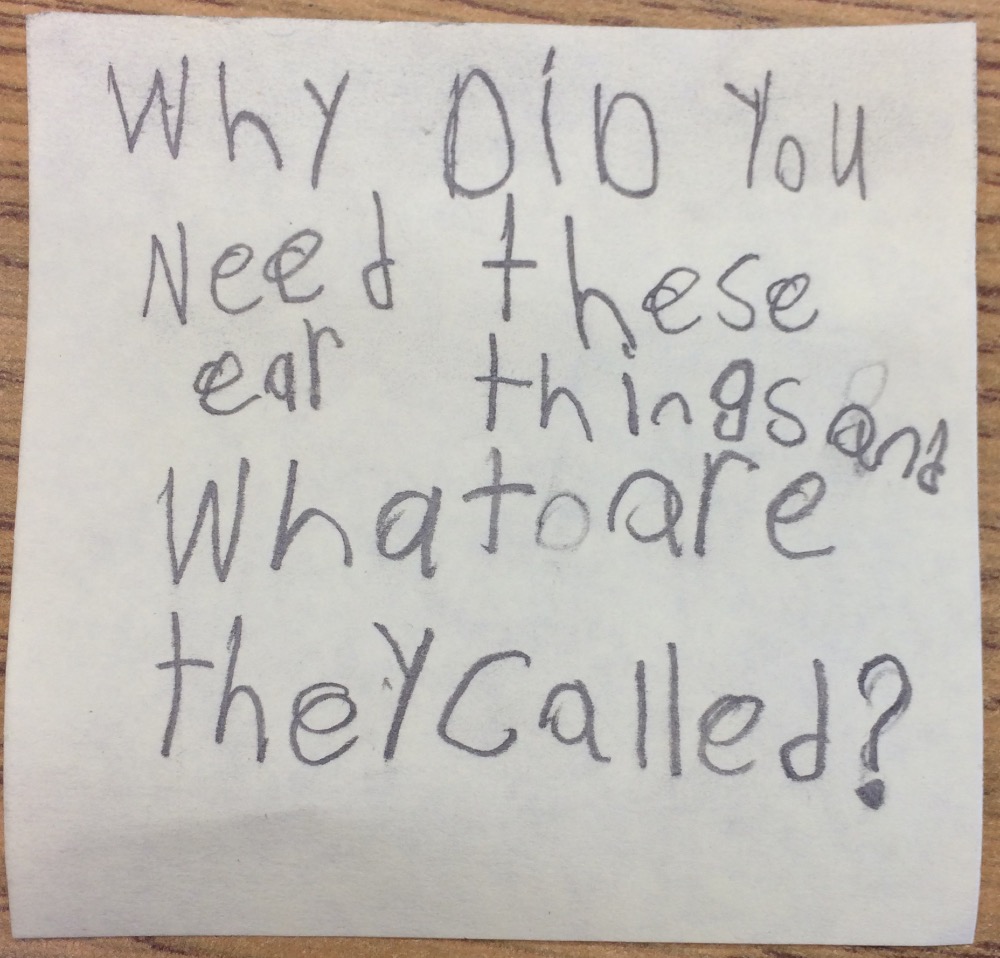 Why DiD You
Need these
ear things and
What are
they Called?